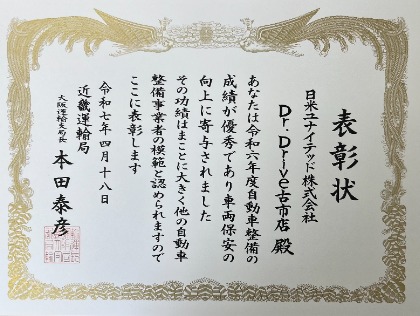 表彰状
日米ユナイテッド株式会社
Dr.Drive古市店 殿
あなたは令和六年度自動車整備の
成績が優秀であり車両保安の
向上に寄与されました
その功績はまことに大きく他の自動車
整備事業者の模範と認められますので
ここに表彰します
令和七年四月十八日
近畿運輸局
大阪運輸支局長 本田泰彦